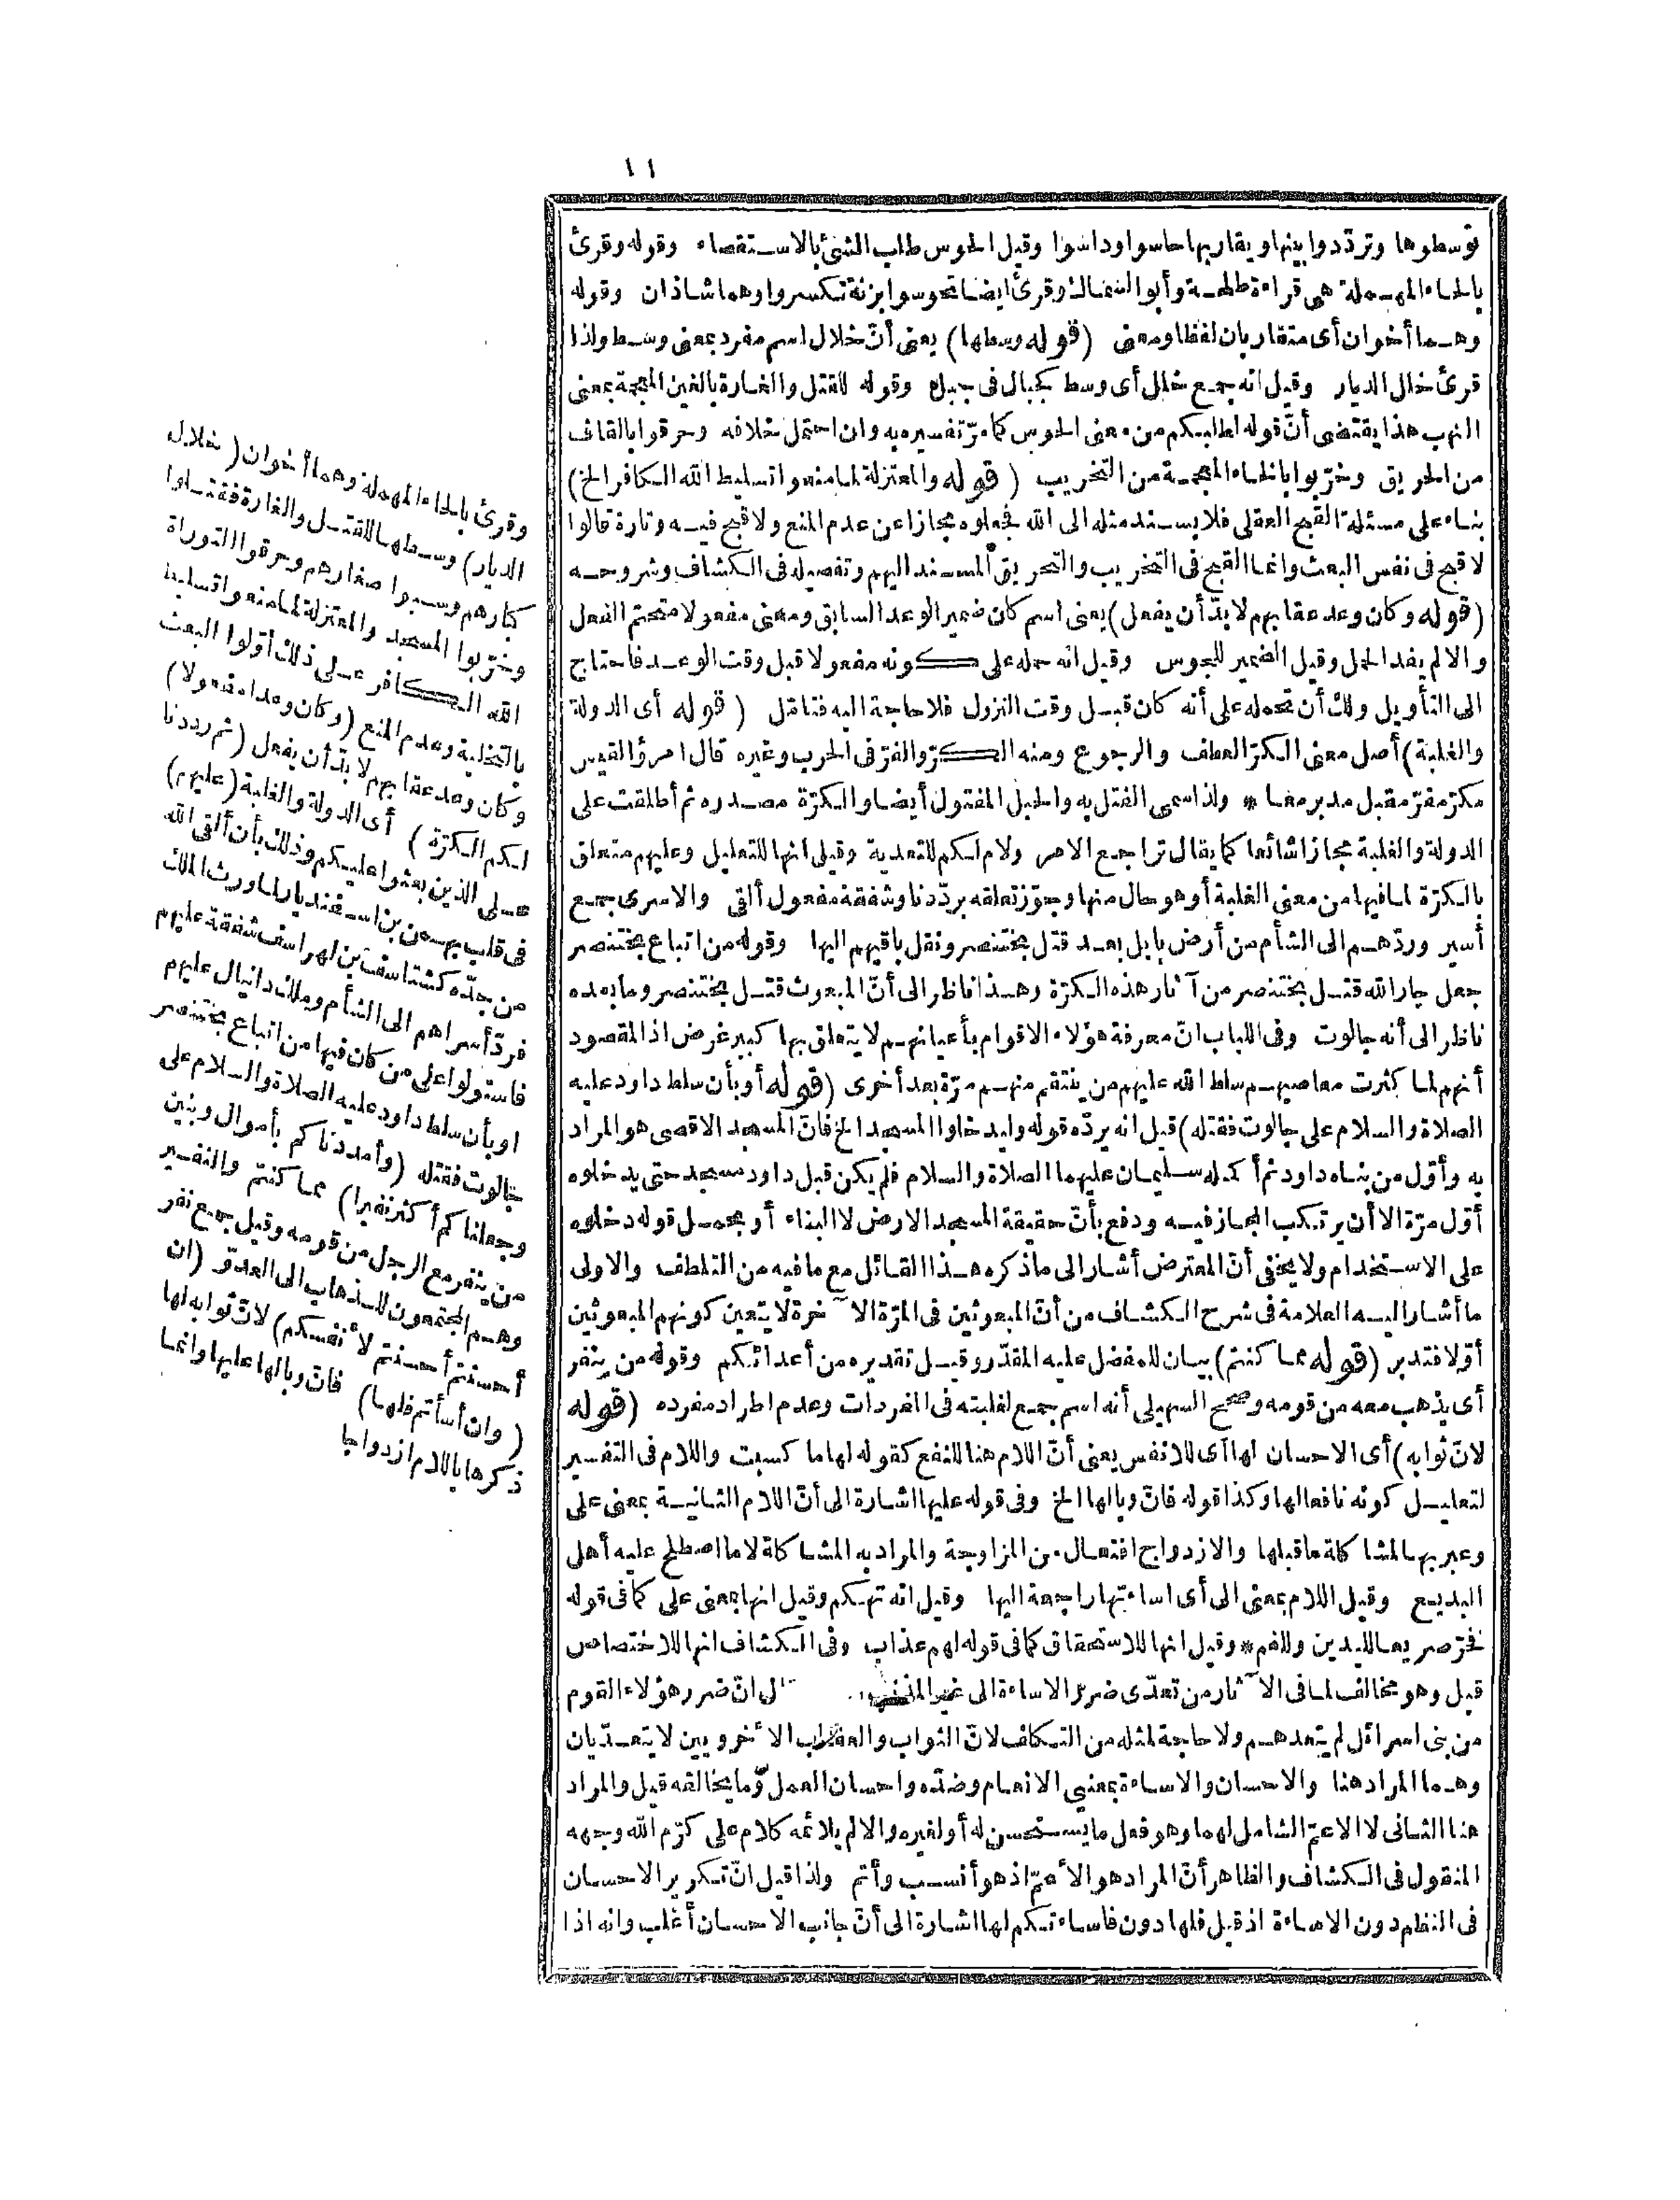 ١١
توسطوها وتردّدوا بينها ويقاربها حاسوا وداسوا وقيل الجوس طلب الشئ بالاستقصاء وقوله وقرئ
بالحاء المهملة هى قراءة طلحة وأبو السمال وقرئ ايضا تجوسوا بزنة تكسروا وهما شاذان وقوله
وهما أخوان أى متقاربان لفظا ومعنى (قوله وسطها) يعنى أنّ خلال اسم مفرد بمعنى وسط ولذا
قرئ خلل الديار وقيل انه جمع خلل أى وسط كجبال فى جبل وقوله للقتل والغارة بالغين المعجمة بمعنى
النهب هذا يقتضى أنّ قوله لطلبكم من معنى الجوس كما مرّ تفسيره به وان احتمل خلافه وحرقوا بالقاف
من الحريق وخرّبوا بالخاء المعجمة من التخريب (قوله والمعتزلة لما منعوا تسليط الله الكافر الخ)
بناء على مسئلة القبح العقلى فلا يسند مثله الى الله فجعلوه مجازا عن عدم المنع ولا قبح فيه وتارة قالوا
لا قبح فى نفس البعث وانما القبح فى التخريب والتحريق المسند اليهم وتفصيله فى الكشاف وشروحه
(قوله وكان وعد عقابهم لا بدّ أن يفعل) يعنى اسم كان ضمير الوعد السابق ومعنى مفعولا متحتم الفعل
والا لم يفد الحمل وقيل الضمير للجوس وقيل انه حمله على كونه مفعولا قبل وقت الوعد فاحتاج
الى التأويل ولك أن تحمله على أنه كان قبل وقت النزول فلا حاجة اليه فتأمّل (قوله أى الدولة
والغلبة) أصل معنى الكرّ العطف والرجوع ومنه الكرّ والفرّ فى الحرب وغيره قال امرؤ القيس
مكرّ مفرّ مقبل مدبر معا * ولذا سمى الفتل به والحبل المفتول أيضا والكرّة مصدره ثم أطلقت على
الدولة والغلبة مجازا شائعا كما يقال تراجع الامر ولام لكم للتعدية وقيل انها للتعليل وعليهم متعلق
بالكرّة لما فيها من معنى الغلبة أو هو حال منها وجوّز تعلقه برددنا وشفقة مفعول ألقى والاسرى جمع
أسير وردّهم الى الشأم من أرض بابل بعد قتل بختنصر ونقل باقيهم اليها وقوله من اتباع بختنصر
جعل جار الله قتل بختنصر من آثار هذه الكرّة وهذا ناظر الى أنّ المبعوث قتل بختنصر وما بعده
ناظر الى أنه جالوت وفى اللباب انّ معرفة هؤلاء الاقوام بأعيانهم لا يتعلق بها كبير غرض اذ المقصود
أنهم لما كثرت معاصيهم سلط الله عليهم من ينتقم منهم مرّة بعد أخرى (قوله أو بأن سلط داود عليه
الصلاة والسلام على جالوت فقتله) قيل انه يردّه قوله وليدخلوا المسجد الخ فانّ المسجد الاقصى هو المراد
به وأوّل من بناه داود ثم أكمله سليمان عليهما الصلاة والسلام فلم يكن قبل داود مسجد حتى يدخلوه
أوّل مرّة الا أن يرتكب المجاز فيه ودفع بأنّ حقيقة المسجد الارض لا البناء أو يحمل قوله دخلوه
على الاستخدام ولا يخفى أنّ المعترض أشار الى ما ذكره هذا القائل مع ما فيه من التلطف والاولى
ما أشار اليه العلامة فى شرح الكشاف من أنّ المبعوثين فى المرّة الآخرة لا يتعين كونهم المبعوثين
أوّلا فتدبر (قوله مما كنتم) بيان للمفضل عليه المقدّر وقيل تقديره من أعدائكم وقوله من ينفر
أى يذهب معه من قومه وصحح السهيلى أنه اسم جمع لغلبته فى المفردات وعدم اطراد مفرده (قوله
لانّ ثوابه) أى الاحسان لها أى للانفس يعنى أنّ اللام هنا للنفع كقوله لها ما كسبت واللام فى التفسير
لتعليل كونه نافعا لها وكذا قوله فانّ وبالها الخ وفى قوله عليها اشارة الى أنّ اللام الثانية بمعنى على
وعبر بها لمشاكلة ما قبلها والازدواج افتعال من المزاوجة والمراد به المشاكلة لا ما اصطلح عليه أهل
البديع وقيل اللام بمعنى الى أى اساءتها راجعة اليها وقيل انه تهكم وقيل انها بمعنى على كما فى قوله
فخرّ صريعا لليدين وللفم * وقيل انها للاستحقاق كما فى قوله لهم عذاب وفى الكشاف انها للاختصاص
قيل وهو مخالف لما فى الآثار من تعدّى ضرر الاساءة الى غير المذنب انّ ضرر هؤلاء القوم
من بنى اسرائل لم يتعدهم ولا حاجة لمثله من التكلف لانّ الثواب والعقاب الأخرويين لا يتعدّيان
وهما المراد هنا والاحسان والاساءة بمعنى الانعام وضدّه واحسان العمل وما يخالفه قيل والمراد
هنا الثانى لا الاعمّ الشامل لهما وهو فعل ما يستحسن له أو لغيره والا لم يلائمه كلام على كرّم الله وجهه
المنقول فى الكشاف والظاهر أنّ المراد هو الأعمّ اذ هو أنسب وأتم ولذا قيل انّ تكرير الاحسان
فى النظم دون الاساءة اذ قيل فلها دون فاساءتكم لها اشارة الى أنّ جانب الاحسان أغلب وانه اذا
وقرئ بالحاء المهملة وهما أخوان (خلال
الديار) وسطها للقتل والغارة فقتلوا
كبارهم وسبوا صغارهم وحرقوا التوراة
وخرّبوا المسجد والمعتزلة لما منعوا تسليط
الله الكافر على ذلك أوّلوا البعث
بالتخلية وعدم المنع (وكان وعدا مفعولا)
وكان وعد عقابهم لا بدّ أن يفعل (ثم رددنا
لكم الكرّة) أى الدولة والغلبة (عليهم)
على الذين بعثوا عليكم وذلك بأن ألقى الله
فى قلب بهمن بن اسفنديار لما ورث الملك
من جدّه كشتاسف بن لهراسف شفقة عليهم
فردّ أسراهم الى الشأم وملك دانيال عليهم
فاستولوا على من كان فيها من اتباع بختنصر
او بأن سلط داود عليه الصلاة والسلام على
جالوت فقتله (وأمددناكم بأموال وبنين
وجعلناكم أكثر نفيرا) مما كنتم والنفير
من ينفر مع الرجل من قومه وقيل جمع نفر
وهم المجتمعون للذهاب الى العدوّ (ان
أحسنتم أحسنتم لأنفسكم) لانّ ثوابه لها
(وان أسأتم فلها) فانّ وبالها عليها وانما
ذكرها باللام ازدواجا